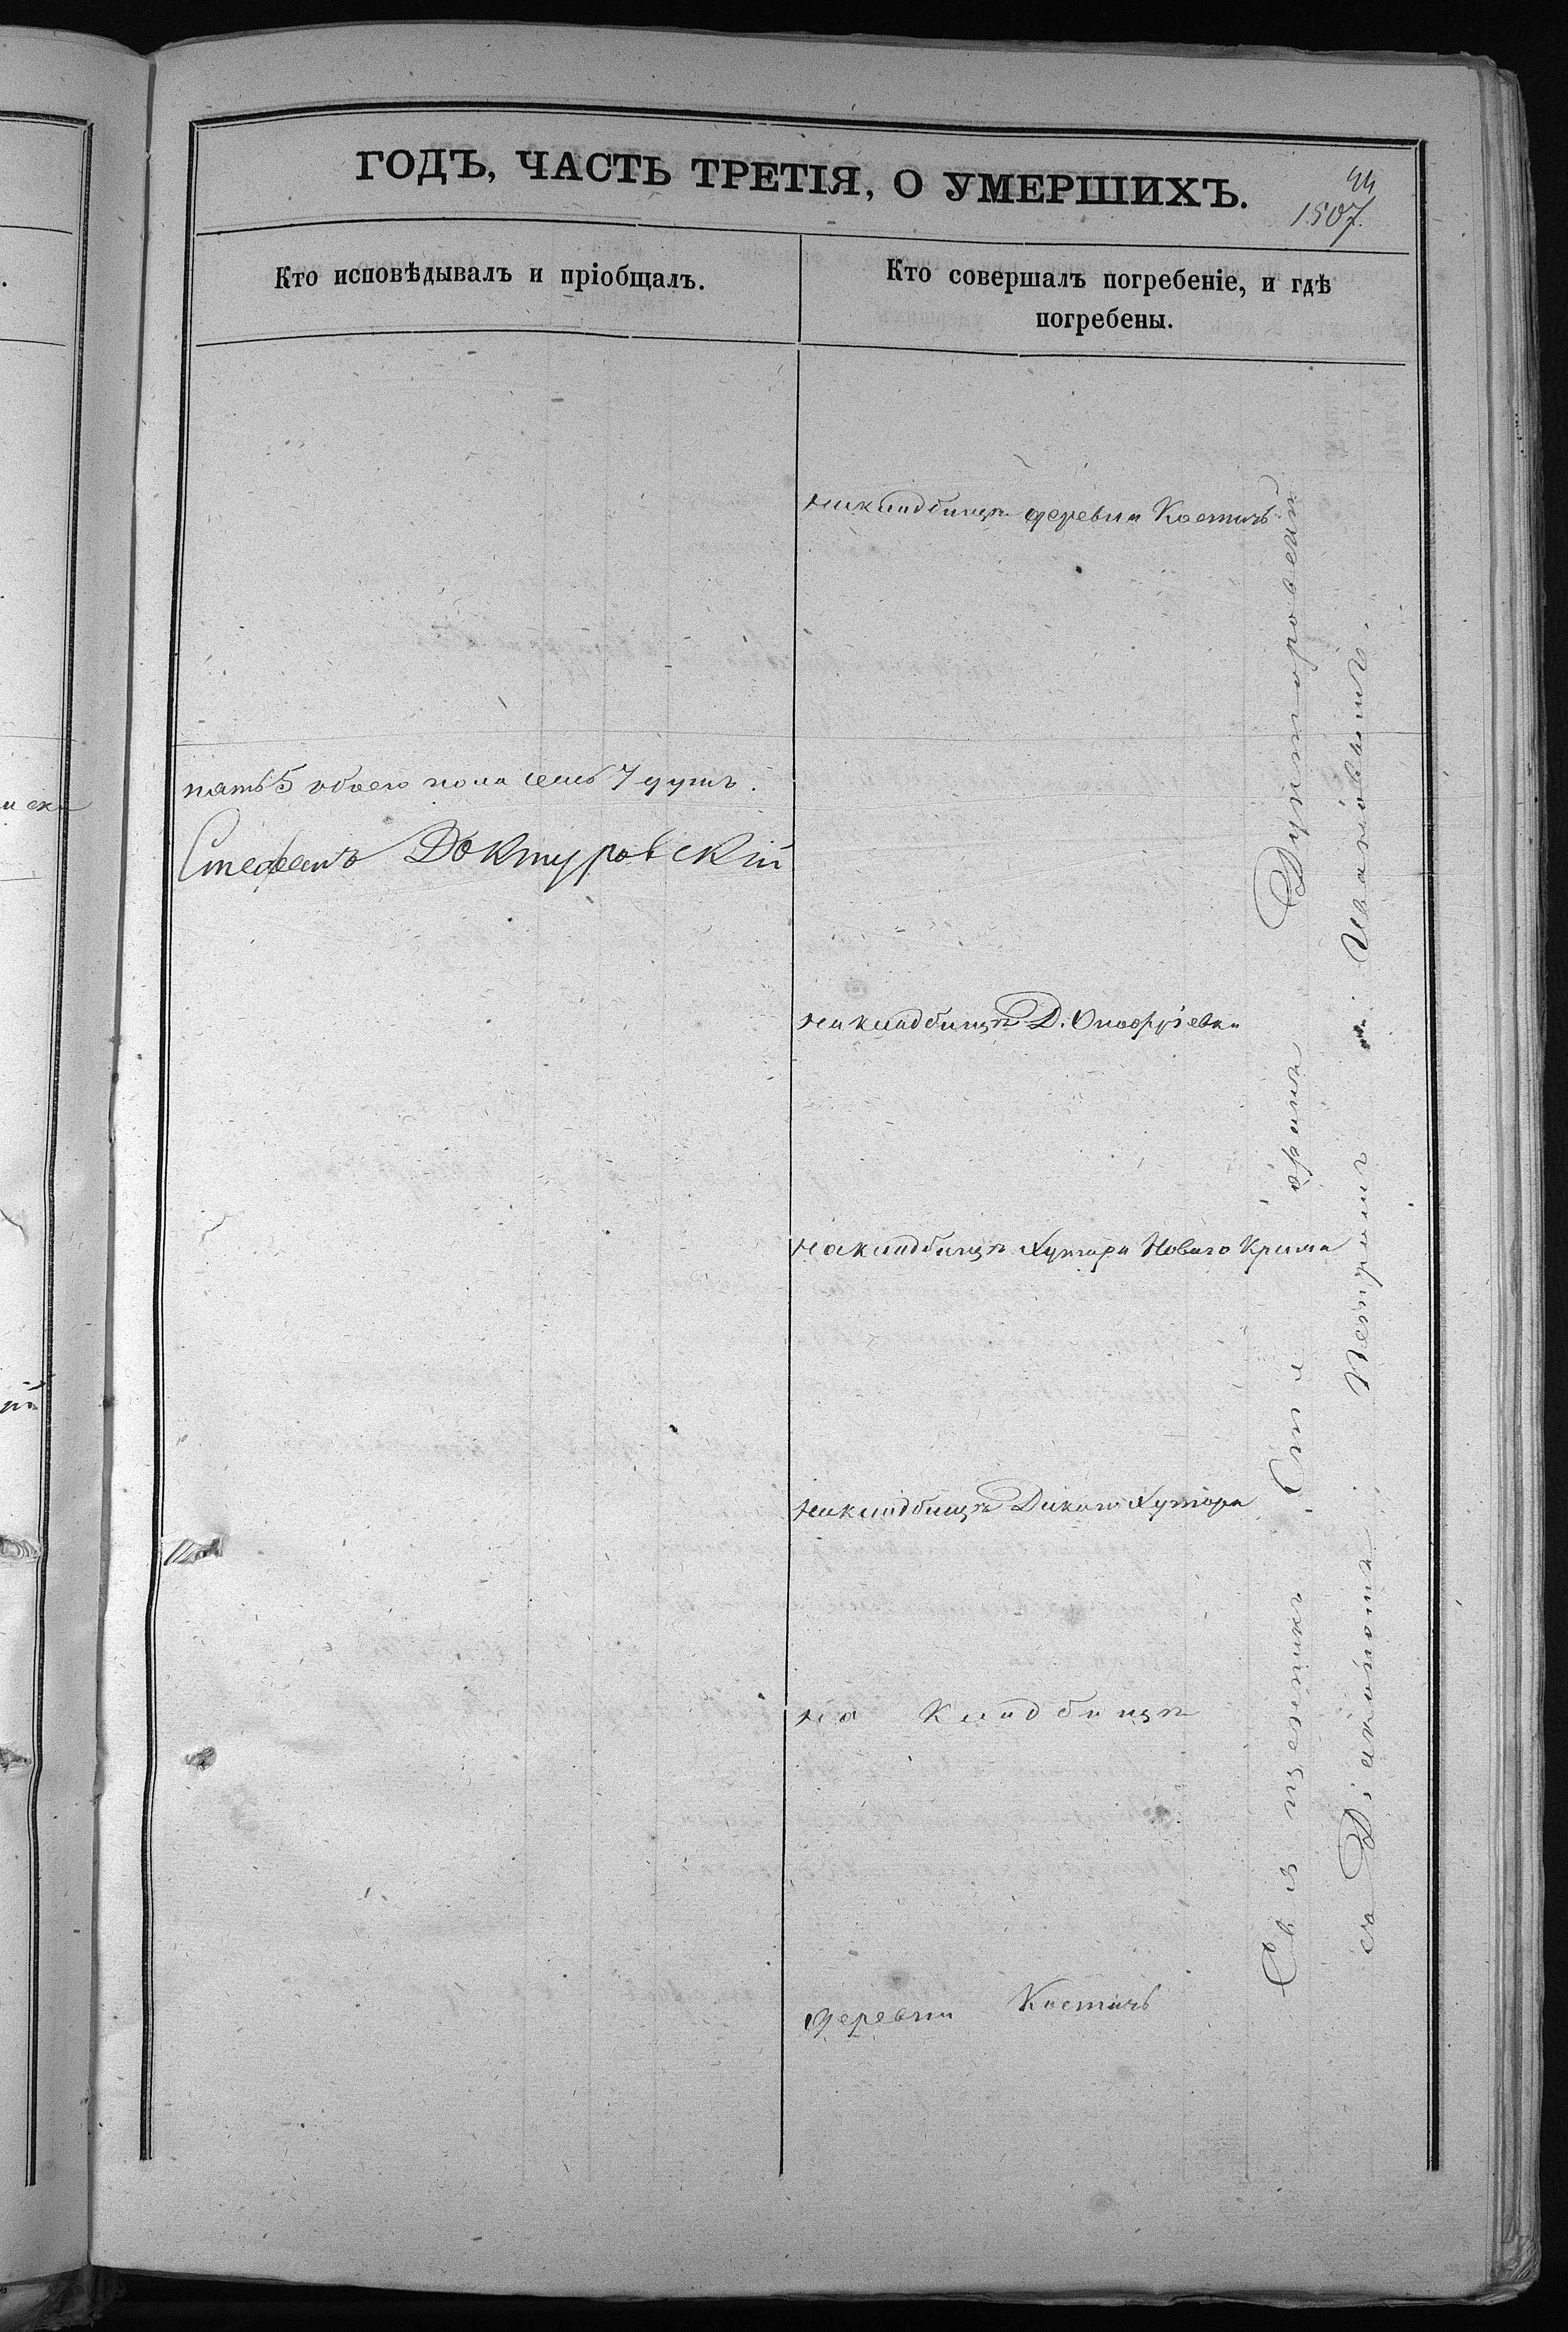 ГОДЪ, ЧАСТЬ ТРЕТІЯ, О УМЕРШИХЪ.
44
1507.
Кто исповѣдывалъ и пріобщалъ.
Кто совершалъ погребеніе, и гдѣ
погребены.
на кладбищѣ деревни Костичъ
пять 5 обоего пола семь 7 душъ.
Стефанъ Доктуровскій
на кладбищѣ Д. Онофріевки
на кладбищѣ Хутора Новаго Крима
на кладбищѣ Дикаго Хутора
на кладбищѣ
деревни Костичъ
Священникъ Доктуровскій
съ Діакономъ Петромъ Ивановымъ.